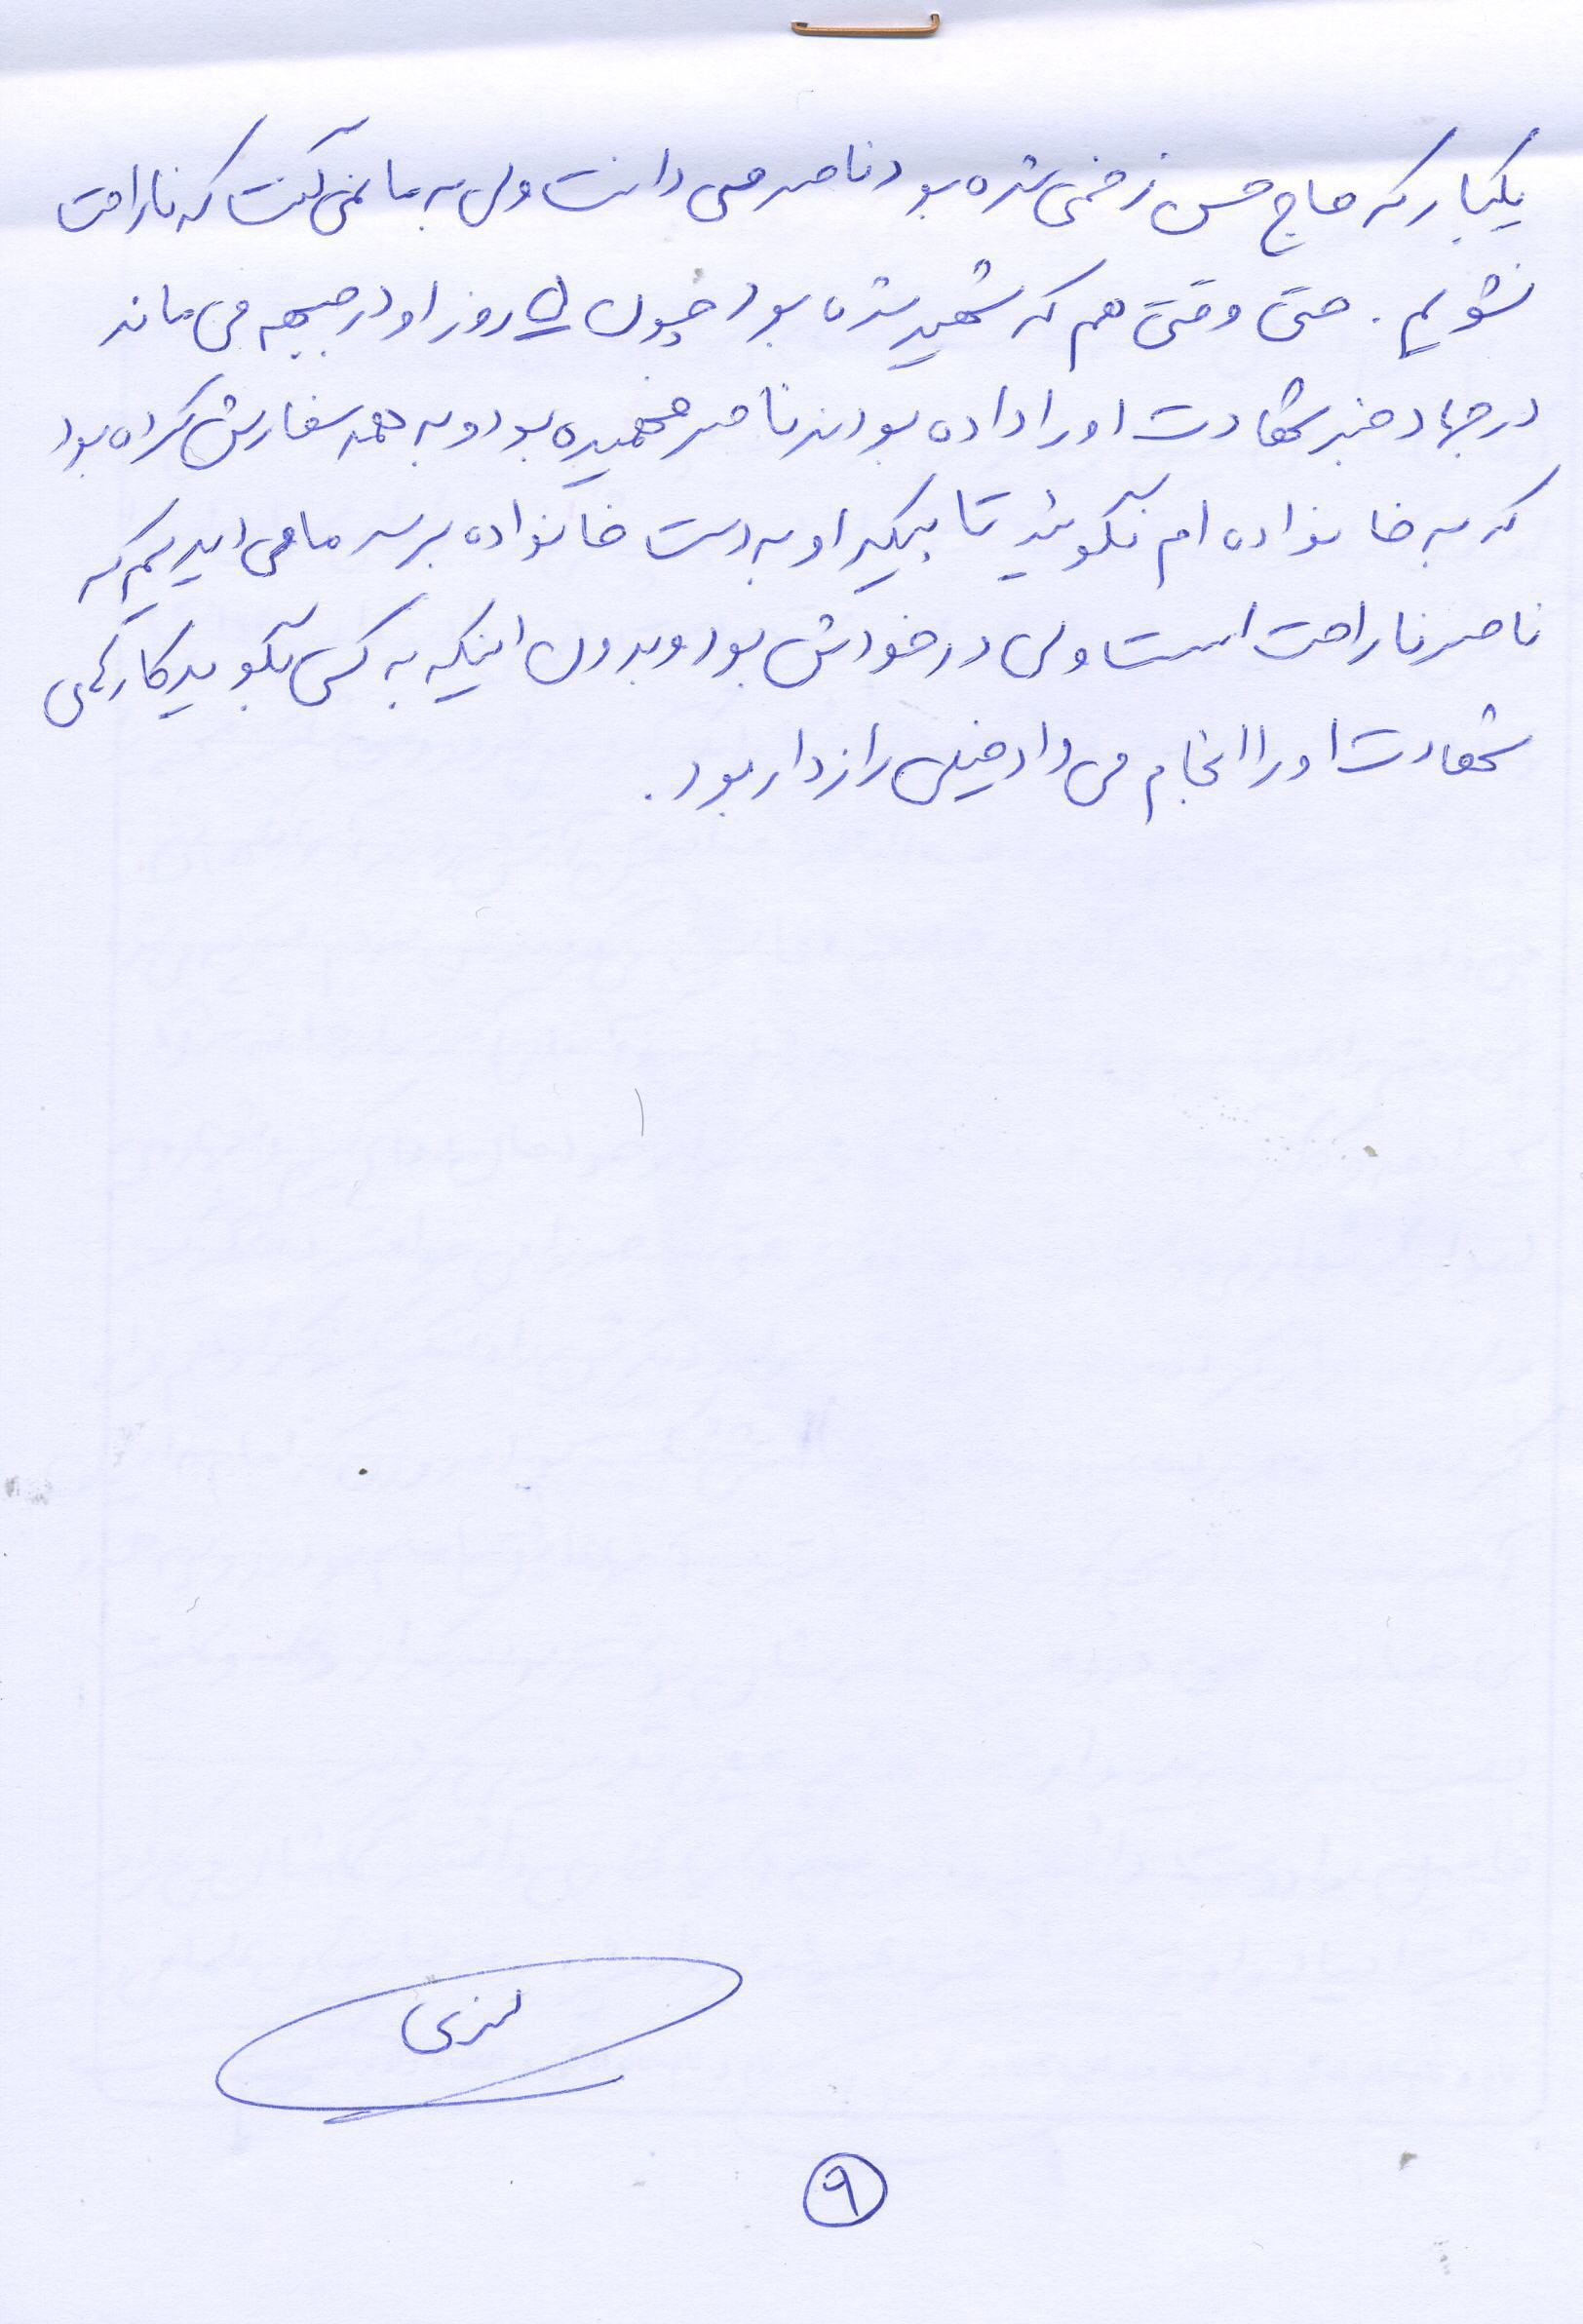 یکبار که حاج حسن زخمی شده بود ناصر می دانست ولی به ما نمی گفت که ناراحت
نشویم . حتی وقتی هم که شهید شده بود چون ۵ روز او در جبهه می ماند
در جهاد خبر شهادت او را داده بودند ناصر فهمیده بود و به همه سفارش کرده بود
که به خانواده ام نگوئید تا پیکر او به دست خانواده برسد ما می دیدیم که
ناصر ناراحت است ولی در خودش بود و بدون اینکه به کسی بگوید کارهای
شهادت او را انجام می داد خیلی رازدار بود .
۹